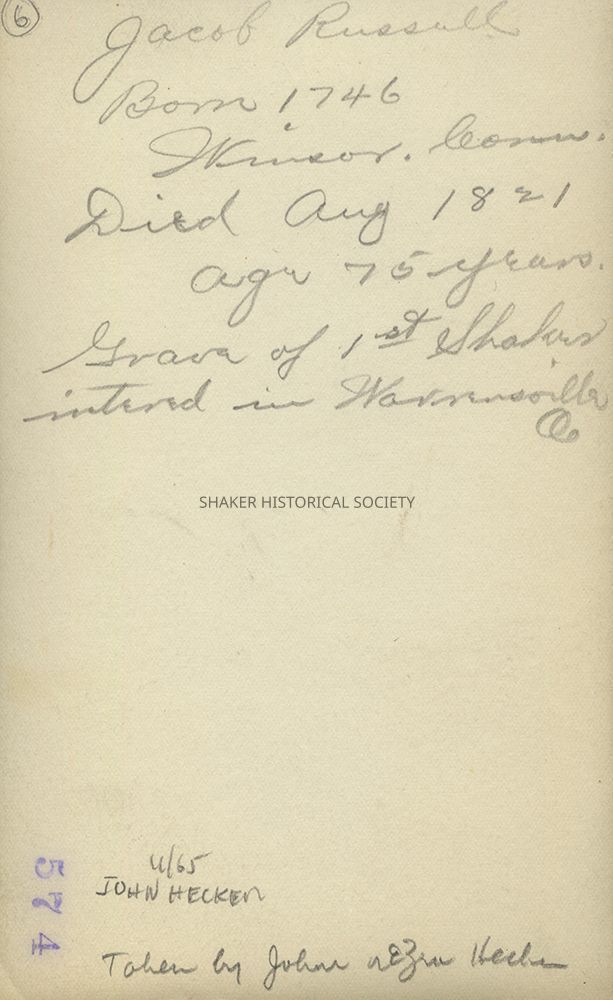 6
Jacob Russell
Born 1746
Winsor. Conn.
Died Aug 1821
age 75 years.
Grave of 1st Shaker
intered in Warrensville
O
SHAKER HISTORICAL SOCIETY
4/65
JOHN HECKER
574
Taken by John Ezra Hecker